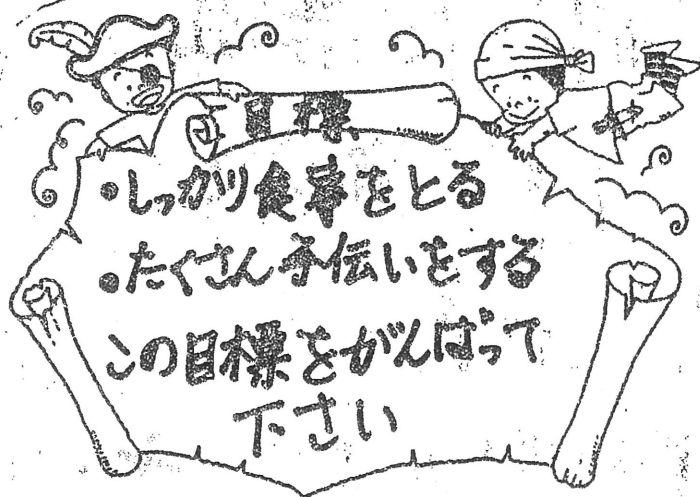 目標
•しっかり食事をとる
•たくさん手伝いをする
この目標をがんばって
下さい